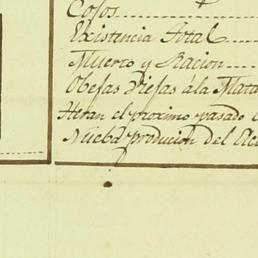 Cojos
Existencia total
Muerto y Racion
Obejas Viejas á la Mata
Heran el proximo pasado
Nueba producion del